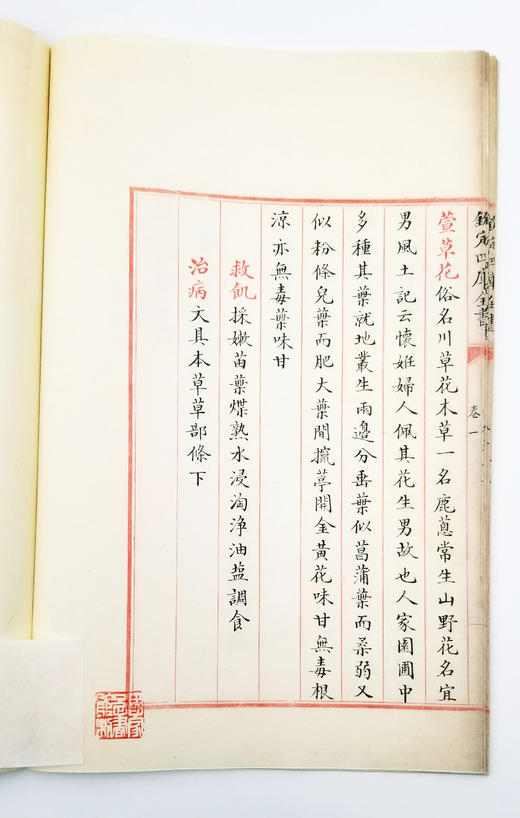 欽定四庫全書
卷一
萱草花俗名川草花本草一名鹿蔥常生山野花名宜
男風土記云懷姙婦人佩其花生男故也人家園圃中
多種其葉就地叢生兩邊分垂葉似菖蒲葉而柔弱又
似粉條兒葉而肥大葉間攛葶開金黃花味甘無毒根
涼亦無毒葉味甘
救飢採嫩苗葉煠熟水浸淘淨油盐調食
治病文具本草草部條下